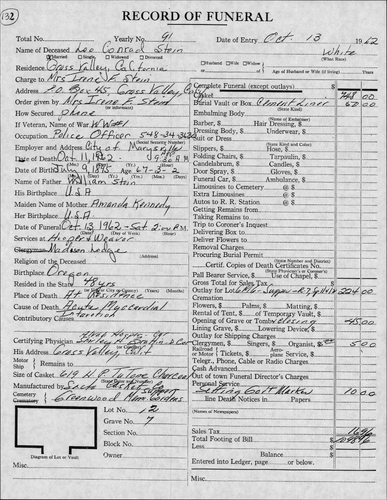 132
RECORD OF FUNERAL
Total No. Yearly No. 91 Date of Entry Oct 13 1962
Name of Deceased Leo Conrad Stein White
Married Single Widowed Divorced (What Race)
Residence Grass Valley, California Husband Wife Widow of Age of Husband or Wife (if living) Years
Charge to Mrs Irene F. Stein
Address P.O. Box 45, Grass Valley, Cal
Order given by Mrs Irene F. Stein
How Secured phone
If Veteran, Name of War WWI
Occupation Police Officer
(Social Security Number)
Employer and Address City of Marysville
Date of Death Oct. 11, 1962
Date of Birth July 9, 1895 Age 67-3-2
Name of Father William Stein
His Birthplace U.S.A
Maiden Name of Mother Amanda Kennedy
Her Birthplace U.S.A.
Date of Funeral Oct. 13, 1962 - Sat 2:00 P.M.
Services at Hooper & Weaver
Clergyman Madison Lodge
Religion of the Deceased
(Address)
Birthplace Oregon
Resided in the State 48 yrs
Place of Death At Residence
Cause of Death Acute Myocardial
Contributory Causes Infarction
Certifying Physician
His Address Grass Valley, Calif
Motor Ship Remains to
Size of Casket 6/9
Manufactured by
Cemetery Greenwood Mem. Gardens
Lot No. 2
Grave No. 7
Section No.
Block No.
Owner
Diagram of Lot or Vault
Misc.
Complete Funeral (except outlays) $
Casket 00
Burial Vault or Box Cement Liner 00
(State Kind)
Embalming Body
(Name of Embalmer)
Barber, $ Hair Dressing, $
Dressing Body, $ Underwear, $
Suit or Dress
(State Kind and Color)
Slippers, $ Hose, $
Folding Chairs, $ Tarpaulin, $
Candelabrum, $ Candles, $
Door Spray, $ Gloves, $
Funeral Car, $ Ambulance, $
Limousines to Cemetery @ $
Extra Limousines @ $
Autos to R. R. Station @ $
Getting Remains from
Taking Remains to
Trip to Coroner's Inquest
Delivering Box to
Deliver Flowers
Removing Charges
Procuring Burial Permit
(State Number and District)
Certif. Copies of Death Certificates No.
(State Physician's or Coroner's)
Pall Bearer Service, $ Use of Chapel, $
Gross Total for Sales Tax $
Outlay for Lot 224.00
Cremation
Flowers, $ Palms, $ Matting, $
Rental of Tent, $ of Temporary Vault, $
Opening of Grave or Tomb 45.00
Lining Grave, $ Lowering Device, $
Outlay for Shipping Charges
Clergymen, $ Singers, $ Organist, $ 5.00
Railroad or Motor Tickets, $ Aeroplane Service, $
Telgr., Phone, Cable or Radio Charges
Cash Advanced
Out of town Funeral Director's Charges
Personal Service
Setting Govt Marker 10.00
line Death Notices in Papers
(Names of Newspapers)
Sales Tax
Total Footing of Bill $
Less $
Balance $
Entered into Ledger, page or below.
Misc.